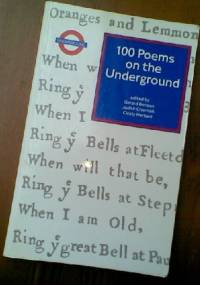 Oranges and Lemmon
100 Poems
on the
Underground
edited by
Gerard Benson
Judith Chernaik
Cicely Herbert
When w
Ring yͤ
When I
Ring yͤ Bells at Fleetd
When will that be,
Ring yͤ Bells at Step
When I am Old,
Ring yͤ great Bell at Pau